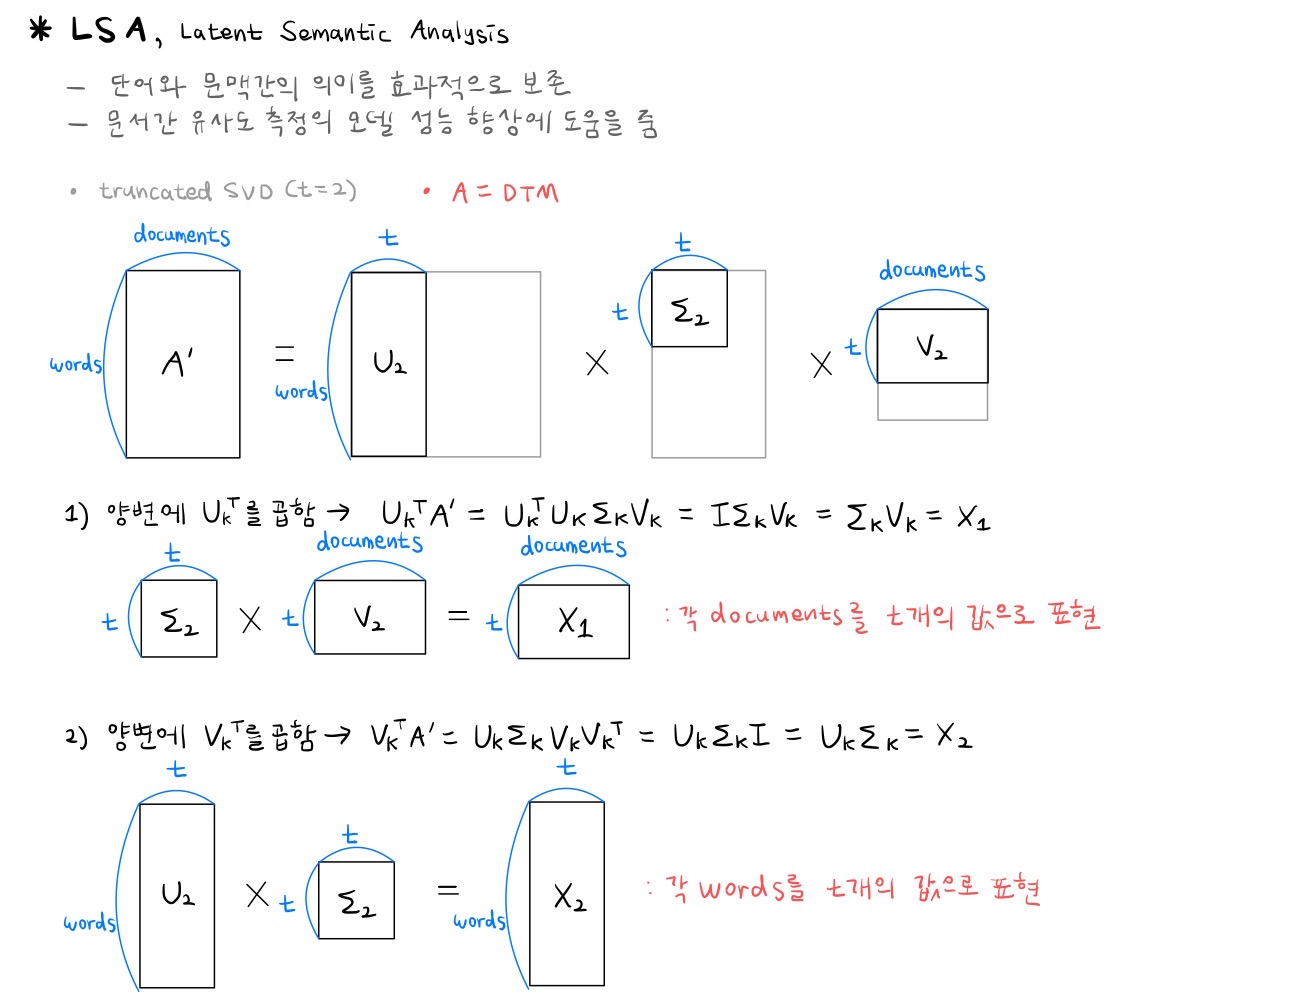 * LSA, Latent Semantic Analysis
- 단어와 문맥간의 의미를 효과적으로 보존
- 문서간 유사도 측정의 모델 성능 향상에 도움을 줌
• truncated SVD (t=2) • A = DTM
documents t t documents
words A' = words U₂ × t Σ₂ × t V₂
1) 양변에 Uₖᵀ를 곱함 → UₖᵀA' = UₖᵀUₖΣₖVₖ = IΣₖVₖ = ΣₖVₖ = X₁
t documents documents
t Σ₂ × t V₂ = t X₁ : 각 documents를 t개의 값으로 표현
2) 양변에 Vₖᵀ를 곱함 → VₖᵀA' = UₖΣₖVₖVₖᵀ = UₖΣₖI = UₖΣₖ = X₂
t t t
words U₂ × t Σ₂ = words X₂ : 각 words를 t개의 값으로 표현